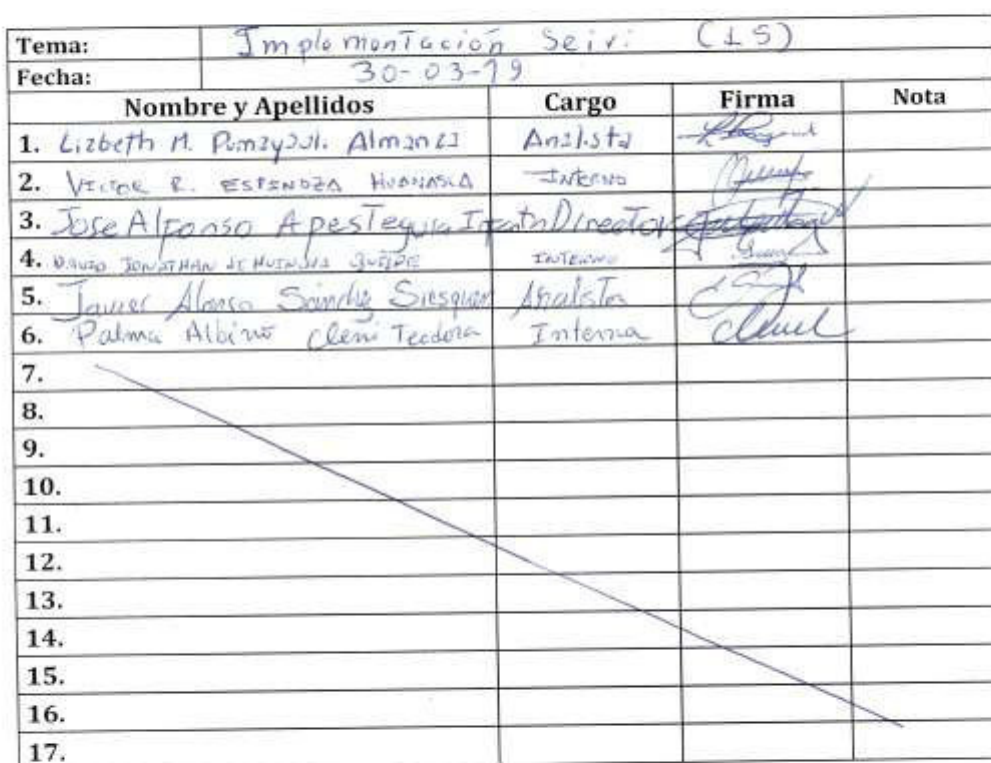 Tema: Implementación Seiri (1S)
Fecha: 30-03-19
Nombre y Apellidos Cargo Firma Nota
1. Lizbeth M. Pumayauli Almanza Analista
2. VICTOR R. ESPINOZA HUANASCA INTERNO
3. Jose Alfonso Apestegura Director
4. DAVID JONATHAN INTERNO
5. Javier Alonso Sanchez Siesquen Analista
6. Palma Albino Cleni Teodora Interna
7.
8.
9.
10.
11.
12.
13.
14.
15.
16.
17.